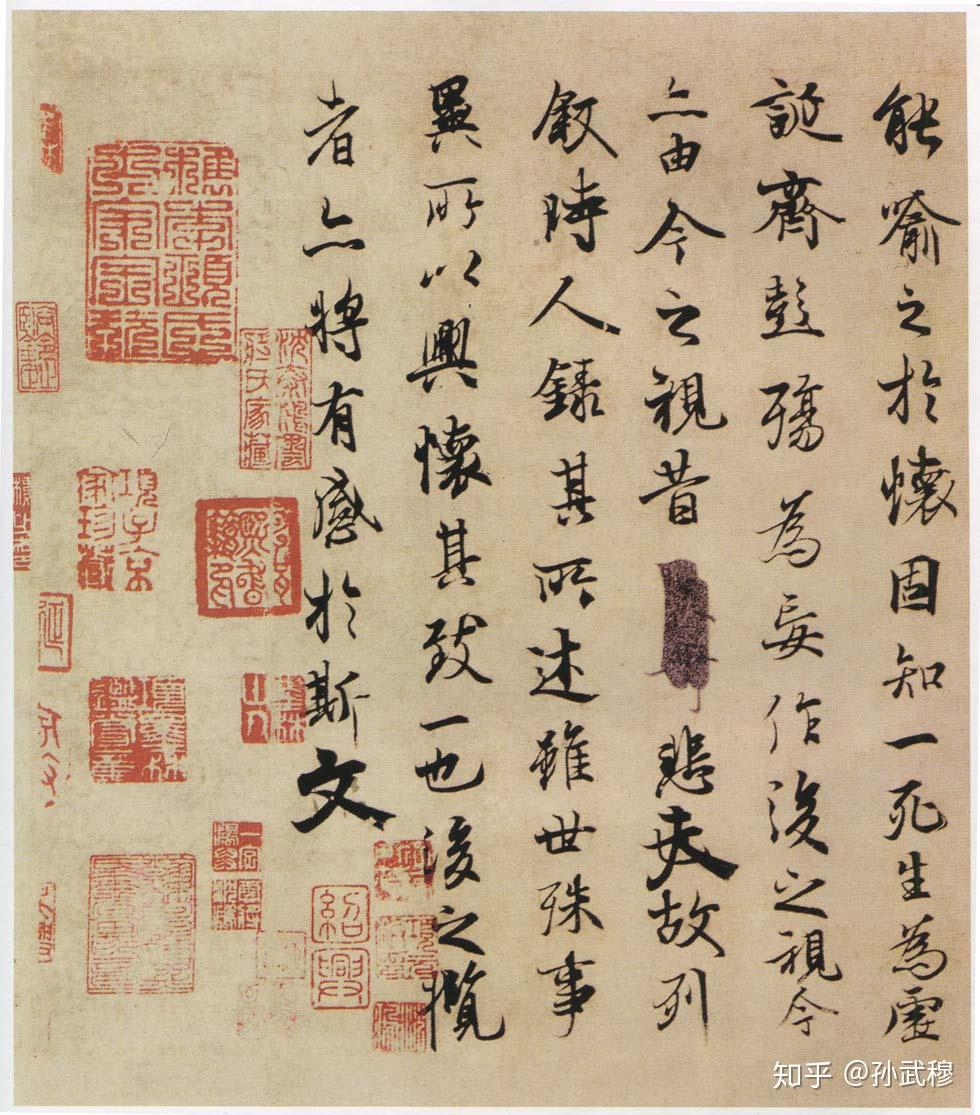 能喻之於懷固知一死生為虛
誕齊彭殤為妄作後之視今
亦由今之視昔悲夫故列
敘時人錄其所述雖世殊事
異所以興懷其致一也後之攬
者亦將有感於斯文
紹興
項子京家珍藏
知乎 @孙武穆